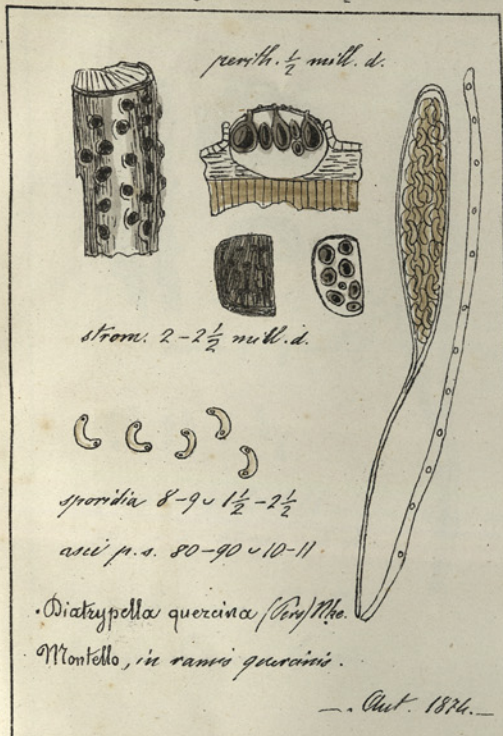 perith. ½ mill. d.
strom. 2-2½ mill. d.
sporidia 8-9 ᴗ 1½-2½
asci p. s. 80-90 ᴗ 10-11
Diatrypella quercina (Pers) Nke.
Montello, in ramis quercinis.
—. Aut. 1874.—